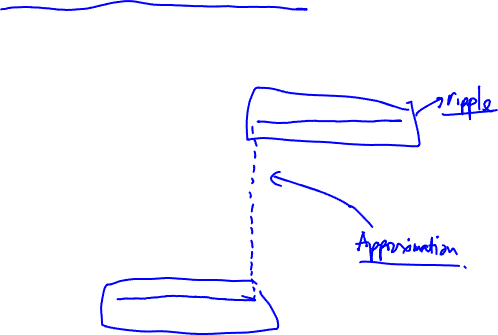 ripple
Approximation.